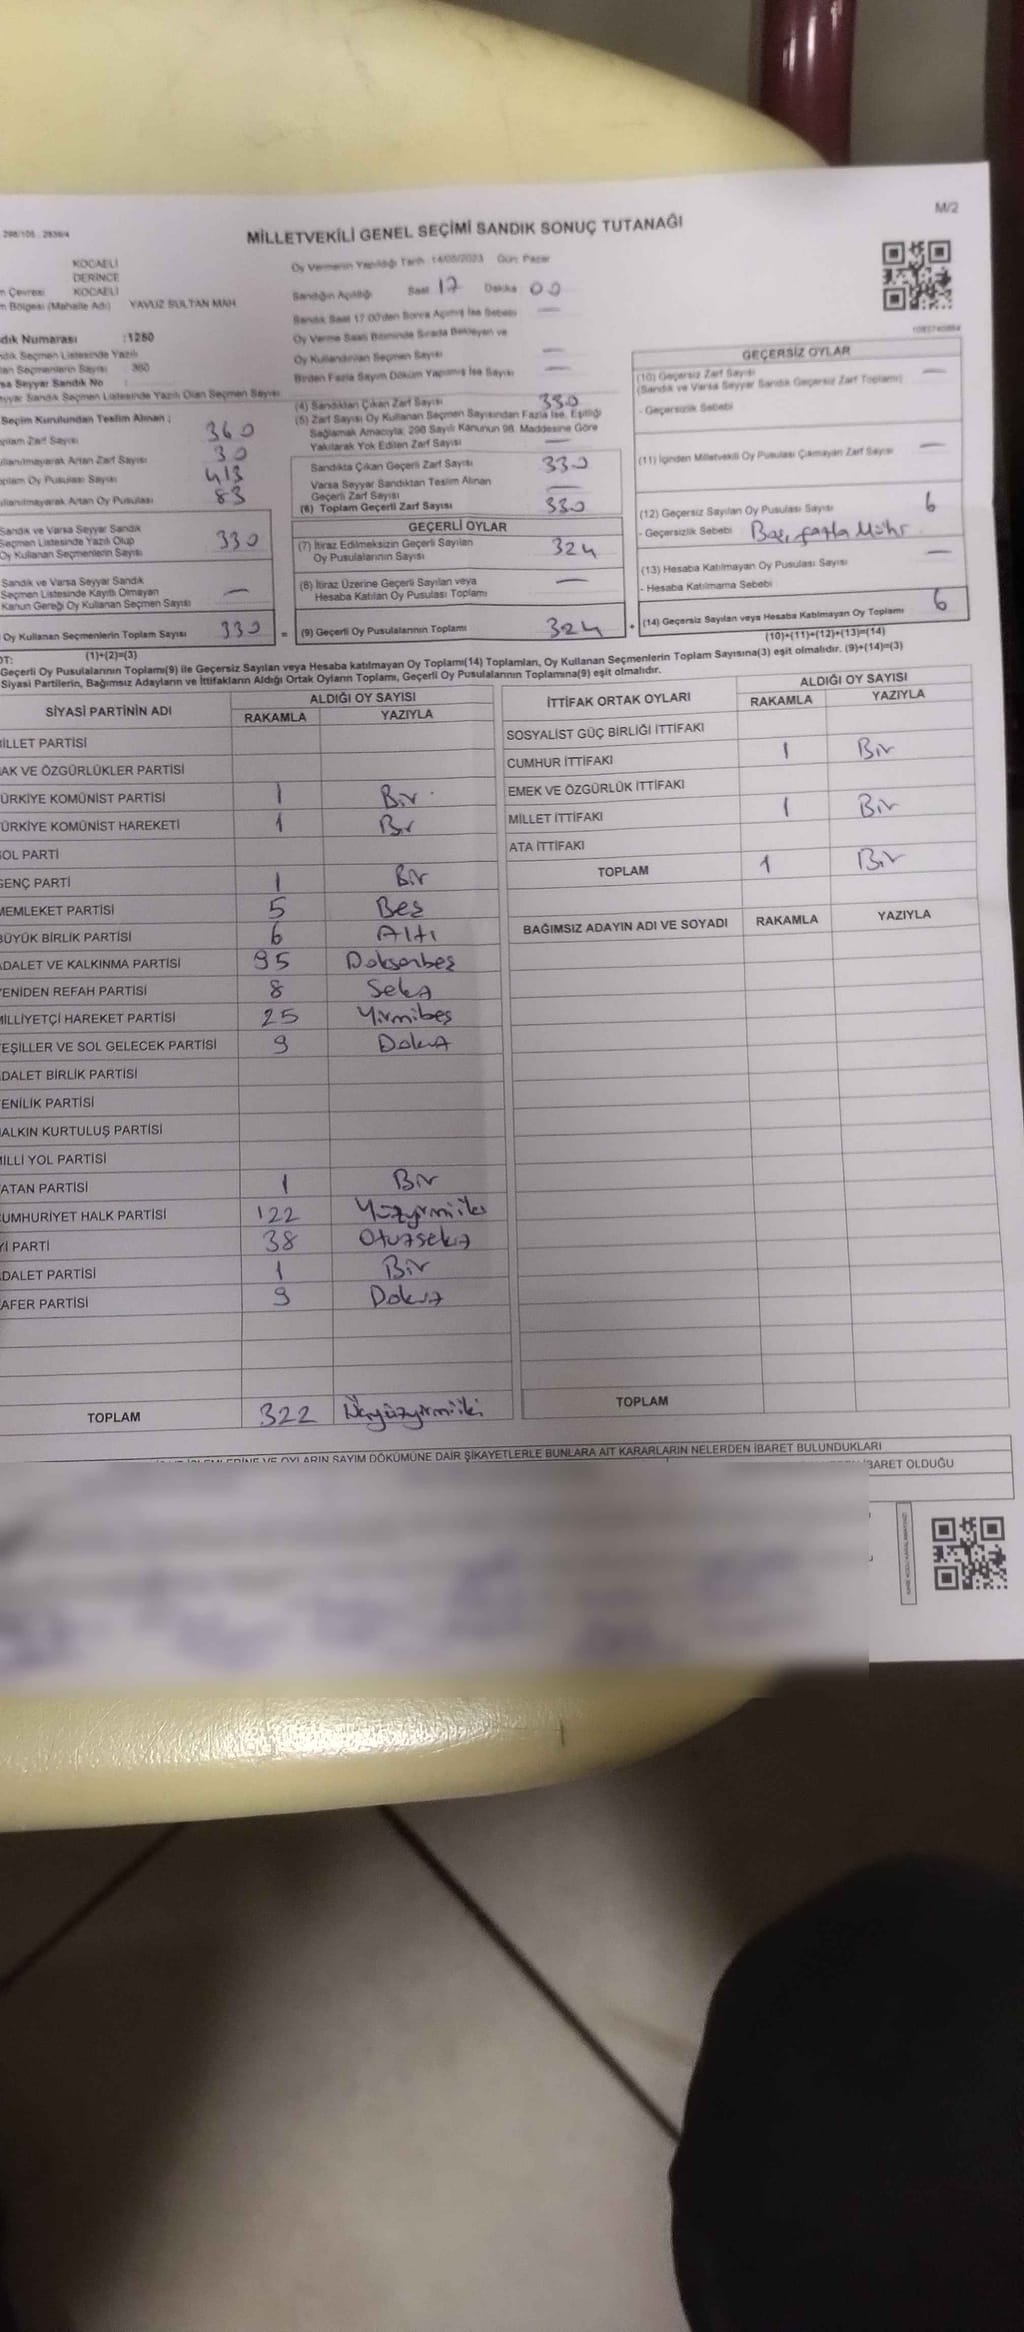 M/2
MİLLETVEKİLİ GENEL SEÇİMİ SANDIK SONUÇ TUTANAĞI
KOCAELİ
DERİNCE
Çevresi KOCAELİ
Bölgesi (Mahalle Adı) YAVUZ SULTAN MAH
Oy Vermenin Yapıldığı Tarih 14/05/2023 Gün: Pazar
Sandığın Açıldığı Saat 17 Dakika 00
Sandık Saat 17:00'den Sonra Açılmış İse Sebebi —
Oy Verme Saati Bitiminde Sırada Bekleyen ve
Oy Kullandırılan Seçmen Sayısı —
Birden Fazla Sayım Döküm Yapılmış İse Sayısı —
Numarası :1250
Seçmen Listesinde Yazılı
Seçmenlerin Sayısı 360
Seyyar Sandık No
Seyyar Sandık Seçmen Listesinde Yazılı Olan Seçmen Sayısı
Seçim Kurulundan Teslim Alınan ;
Zarf Sayısı 360
Artan Zarf Sayısı 30
Oy Pusulası Sayısı 413
Artan Oy Pusulası 83
Sandık ve Varsa Seyyar Sandık
Seçmen Listesinde Yazılı Olup
Oy Kullanan Seçmenlerin Sayısı 330
Sandık ve Varsa Seyyar Sandık
Seçmen Listesine Kayıtlı Olmayan
Kanun Gereği Oy Kullanan Seçmen Sayısı —
Oy Kullanan Seçmenlerin Toplam Sayısı 330
(1)+(2)=(3)
(4) Sandıktan Çıkan Zarf Sayısı 330
(5) Zarf Sayısı Oy Kullanan Seçmen Sayısından Fazla İse, Eşitliği
Sağlamak Amacıyla, 298 Sayılı Kanunun 98. Maddesine Göre
Yakılarak Yok Edilen Zarf Sayısı —
Sandıkta Çıkan Geçerli Zarf Sayısı 330
Varsa Seyyar Sandıktan Teslim Alınan
Geçerli Zarf Sayısı —
(6) Toplam Geçerli Zarf Sayısı 330
GEÇERLİ OYLAR
(7) İtiraz Edilmeksizin Geçerli Sayılan
Oy Pusulalarının Sayısı 324
(8) İtiraz Üzerine Geçerli Sayılan veya
Hesaba Katılan Oy Pusulası Toplamı —
= (9) Geçerli Oy Pusulalarının Toplamı 324
GEÇERSİZ OYLAR
(10) Geçersiz Zarf Sayısı —
(Sandık ve Varsa Seyyar Sandık Geçersiz Zarf Toplamı)
- Geçersizlik Sebebi
(11) İçinden Milletvekili Oy Pusulası Çıkmayan Zarf Sayısı —
(12) Geçersiz Sayılan Oy Pusulası Sayısı 6
- Geçersizlik Sebebi fazla Mühr
(13) Hesaba Katılmayan Oy Pusulası Sayısı —
- Hesaba Katılmama Sebebi
+ (14) Geçersiz Sayılan veya Hesaba Katılmayan Oy Toplamı 6
(10)+(11)+(12)+(13)=(14)
Geçerli Oy Pusulalarının Toplamı(9) ile Geçersiz Sayılan veya Hesaba katılmayan Oy Toplamı(14) Toplamları, Oy Kullanan Seçmenlerin Toplam Sayısına(3) eşit olmalıdır. (9)+(14)=(3)
Siyasi Partilerin, Bağımsız Adayların ve İttifakların Aldığı Ortak Oyların Toplamı, Geçerli Oy Pusulalarının Toplamına(9) eşit olmalıdır.
SİYASİ PARTİNİN ADI ALDIĞI OY SAYISI
RAKAMLA YAZIYLA
İLLET PARTİSİ
AK VE ÖZGÜRLÜKLER PARTİSİ
ÜRKİYE KOMÜNİST PARTİSİ 1 Bir
ÜRKİYE KOMÜNİST HAREKETİ 1 Bir
OL PARTİ
GENÇ PARTİ 1 Bir
MEMLEKET PARTİSİ 5 Beş
BÜYÜK BİRLİK PARTİSİ 6 Altı
ADALET VE KALKINMA PARTİSİ 95 Doksanbeş
YENİDEN REFAH PARTİSİ 8 Sekiz
MİLLİYETÇİ HAREKET PARTİSİ 25 Yirmibeş
YEŞİLLER VE SOL GELECEK PARTİSİ 9 Dokuz
DALET BİRLİK PARTİSİ
ENİLİK PARTİSİ
ALKIN KURTULUŞ PARTİSİ
İLLİ YOL PARTİSİ
ATAN PARTİSİ 1 Bir
UMHURİYET HALK PARTİSİ 122 Yüzyirmiiki
Yİ PARTİ 38 Otuzsekiz
DALET PARTİSİ 1 Bir
AFER PARTİSİ 9 Dokuz
TOPLAM 322 Üçyüzyirmiiki
İTTİFAK ORTAK OYLARI ALDIĞI OY SAYISI
RAKAMLA YAZIYLA
SOSYALİST GÜÇ BİRLİĞİ İTTİFAKI
CUMHUR İTTİFAKI 1 Bir
EMEK VE ÖZGÜRLÜK İTTİFAKI
MİLLET İTTİFAKI 1 Bir
ATA İTTİFAKI
TOPLAM 1 Bir
BAĞIMSIZ ADAYIN ADI VE SOYADI RAKAMLA YAZIYLA
TOPLAM
OYLARIN SAYIM DÖKÜMÜNE DAİR ŞİKAYETLERLE BUNLARA AİT KARARLARIN NELERDEN İBARET BULUNDUKLARI
İBARET OLDUĞU